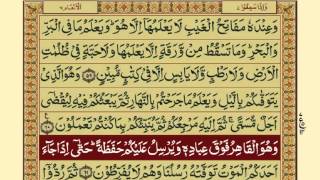 وَاِذَا سَمِعُوْا ٧
الْاَنْعَام ٦
وَعِنْدَهٗ مَفَاتِحُ الْغَيْبِ لَا يَعْلَمُهَاۤ اِلَّا هُوَؕ وَيَعْلَمُ مَا فِى الْبَرِّ
وَالْبَحْرِؕ وَمَا تَسْقُطُ مِنْ وَّرَقَةٍ اِلَّا يَعْلَمُهَا وَلَا حَبَّةٍ فِىْ ظُلُمٰتِ
الْاَرْضِ وَلَا رَطْبٍ وَّلَا يَابِسٍ اِلَّا فِىْ كِتٰبٍ مُّبِيْنٍ ٥٩ وَهُوَ الَّذِىْ
يَتَوَفّٰىكُمْ بِالَّيْلِ وَيَعْلَمُ مَا جَرَحْتُمْ بِالنَّهَارِ ثُمَّ يَبْعَثُكُمْ فِيْهِ لِيُقْضٰۤى
اَجَلٌ مُّسَمًّىۚ ثُمَّ اِلَيْهِ مَرْجِعُكُمْ ثُمَّ يُنَبِّئُكُمْ بِمَا كُنْتُمْ تَعْمَلُوْنَ ٦٠
وَهُوَ الْقَاهِرُ فَوْقَ عِبَادِهٖ وَيُرْسِلُ عَلَيْكُمْ حَفَظَةًؕ حَتّٰۤى اِذَا جَآءَ
اَحَدَكُمُ الْمَوْتُ تَوَفَّتْهُ رُسُلُنَا وَهُمْ لَا يُفَرِّطُوْنَ ٦١ ثُمَّ رُدُّوْۤا